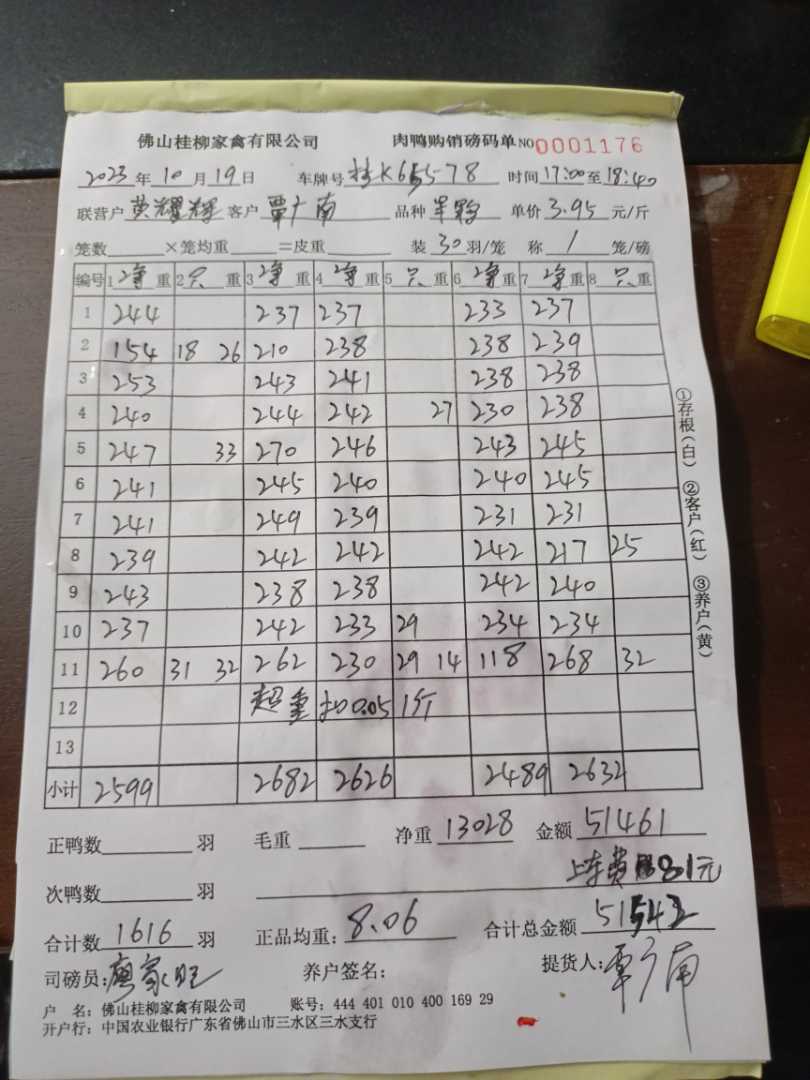 佛山桂柳家禽有限公司 肉鸭购销磅码单 NO 0001176
2023年10月19日 车牌号 桂K65578 时间17:00至18:40
联营户 黄耀辉 客户 覃广南 品种 半番 单价3.95元/斤
笼数 ×笼均重 =皮重 装30羽/笼 称1笼/磅
编号 1净重 2只重 3净重 4净重 5只重 6净重 7净重 8只重
1 244 237 237 233 237
2 154 18 26 210 238 238 239
3 253 243 241 238 238
4 240 244 242 27 230 238
5 247 33 270 246 243 245
6 241 245 240 240 245
7 241 249 239 231 231
8 239 242 242 242 217 25
9 243 238 238 242 240
10 237 242 233 29 234 234
11 260 31 32 262 230 29 14 118 268 32
12 超重扣0.05 1斤
13
小计 2599 2682 2626 2489 2632
正鸭数 羽 毛重 净重 13028 金额 51461
次鸭数 羽 上车费 81元
合计数 1616 羽 正品均重: 8.06 合计总金额 51542
司磅员: 廖家旺 养户签名: 提货人: 覃广南
户 名: 佛山桂柳家禽有限公司 账号: 444 401 010 400 169 29
开户行: 中国农业银行广东省佛山市三水区三水支行
①存根(白) ②客户(红) ③养户(黄)